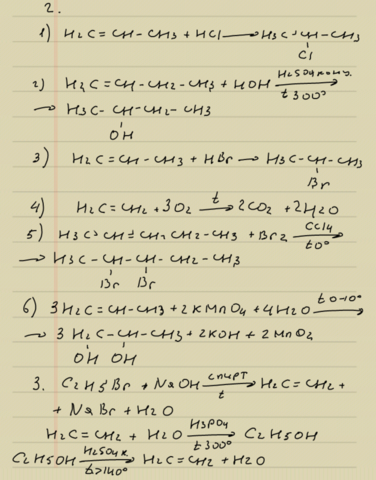 2.
1) H2C=CH-CH3 + HCl → H3C-CH-CH3
Cl
2) H2C=CH-CH2-CH3 + HOH H2SO4 конц. t 300° →
→ H3C-CH-CH2-CH3
OH
3) H2C=CH-CH3 + HBr → H3C-CH-CH3
Br
4) H2C=CH2 + 3O2 t → 2CO2 + 2H2O
5) H3C-CH=CH-CH2-CH3 + Br2 CCl4 t0° →
→ H3C-CH-CH-CH2-CH3
Br Br
6) 3H2C=CH-CH3 + 2KMnO4 + 4H2O t 0-10° →
→ 3 H2C-CH-CH3 + 2KOH + 2MnO2
OH OH
3. C2H5Br + NaOH спирт t → H2C=CH2 +
+ NaBr + H2O
H2C=CH2 + H2O H3PO4 t300° → C2H5OH
C2H5OH H2SO4 к. t>140° → H2C=CH2 + H2O